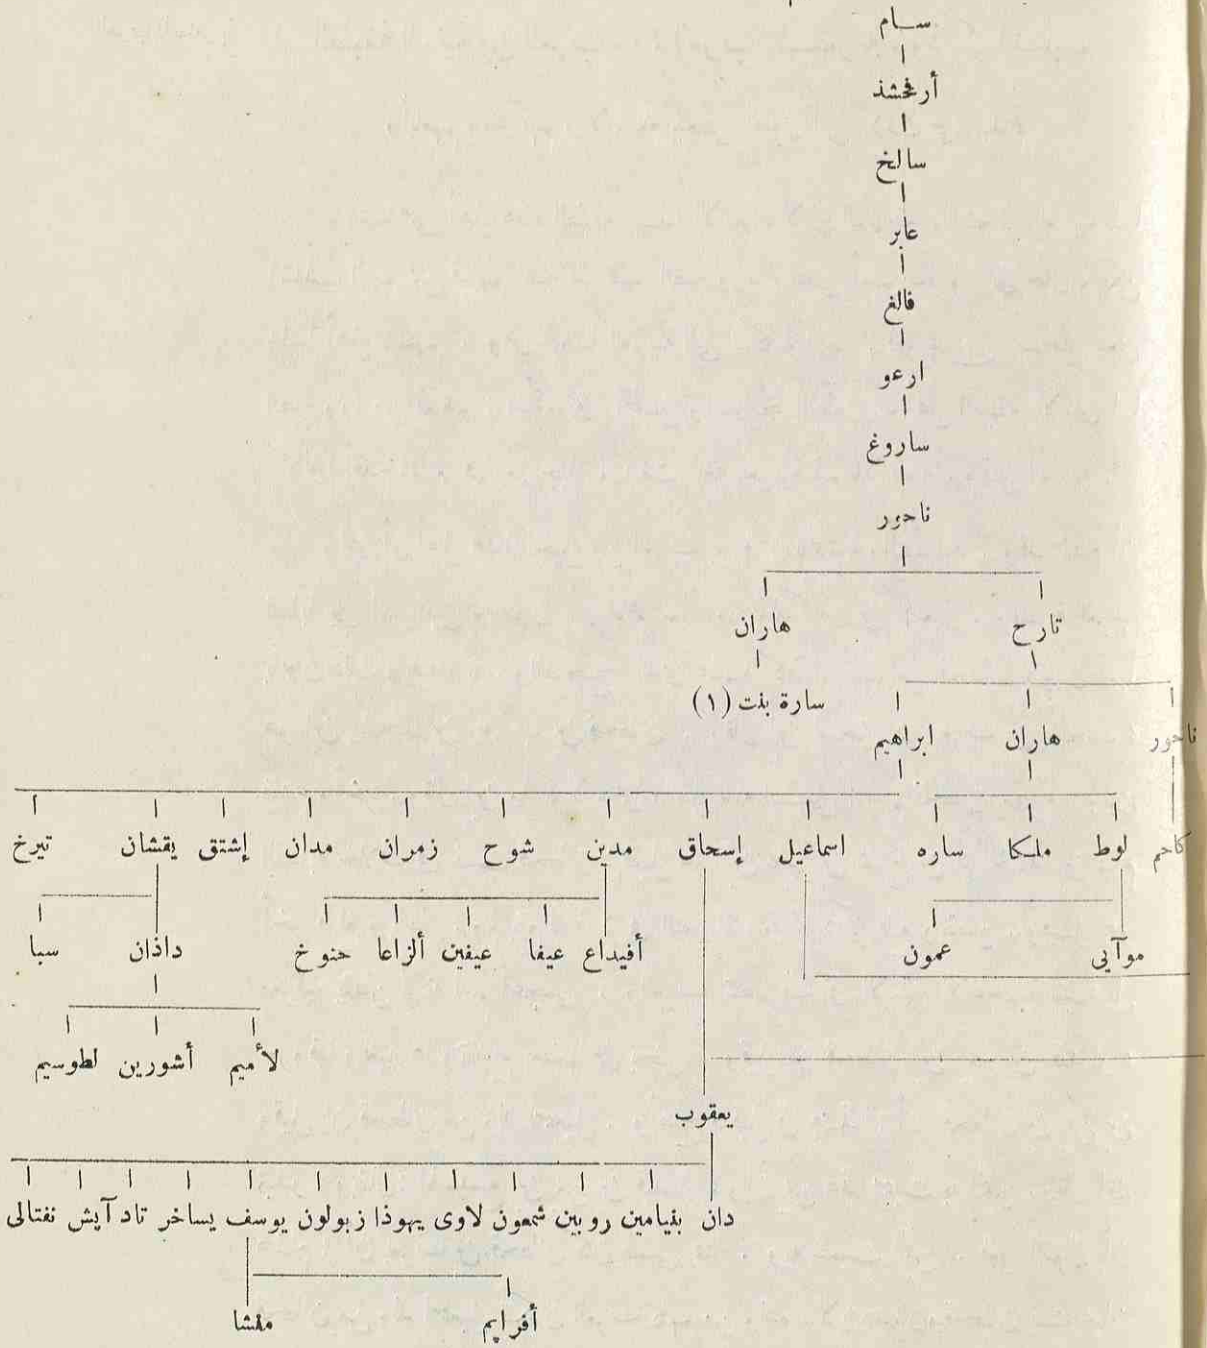 سام
أرفخشذ
سالخ
عابر
فالغ
ارعو
ساروغ
ناحور
تارح هاران
سارة بنت (١)
ناحور هاران ابراهيم
لوط ملكا ساره اسماعيل إسحاق مدين شوح زمران مدان إشتق يقشان تيرخ
موآبي عمون أفيداع عيفا عيفين ألزاعا حنوخ داذان سبا
لأميم أشورين لطوسيم
يعقوب
دان بنيامين روبين شمعون لاوى يهوذا زبولون يوسف يساخر تاد آيش نفتالى
أفرايم منشا